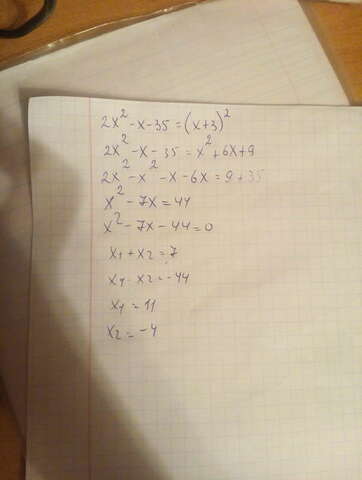 2x² - x - 35 = (x+3)²
2x² - x - 35 = x² + 6x + 9
2x² - x² - x - 6x = 9 + 35
x² - 7x = 44
x² - 7x - 44 = 0
x₁ + x₂ = 7
x₁ · x₂ = -44
x₁ = 11
x₂ = -4